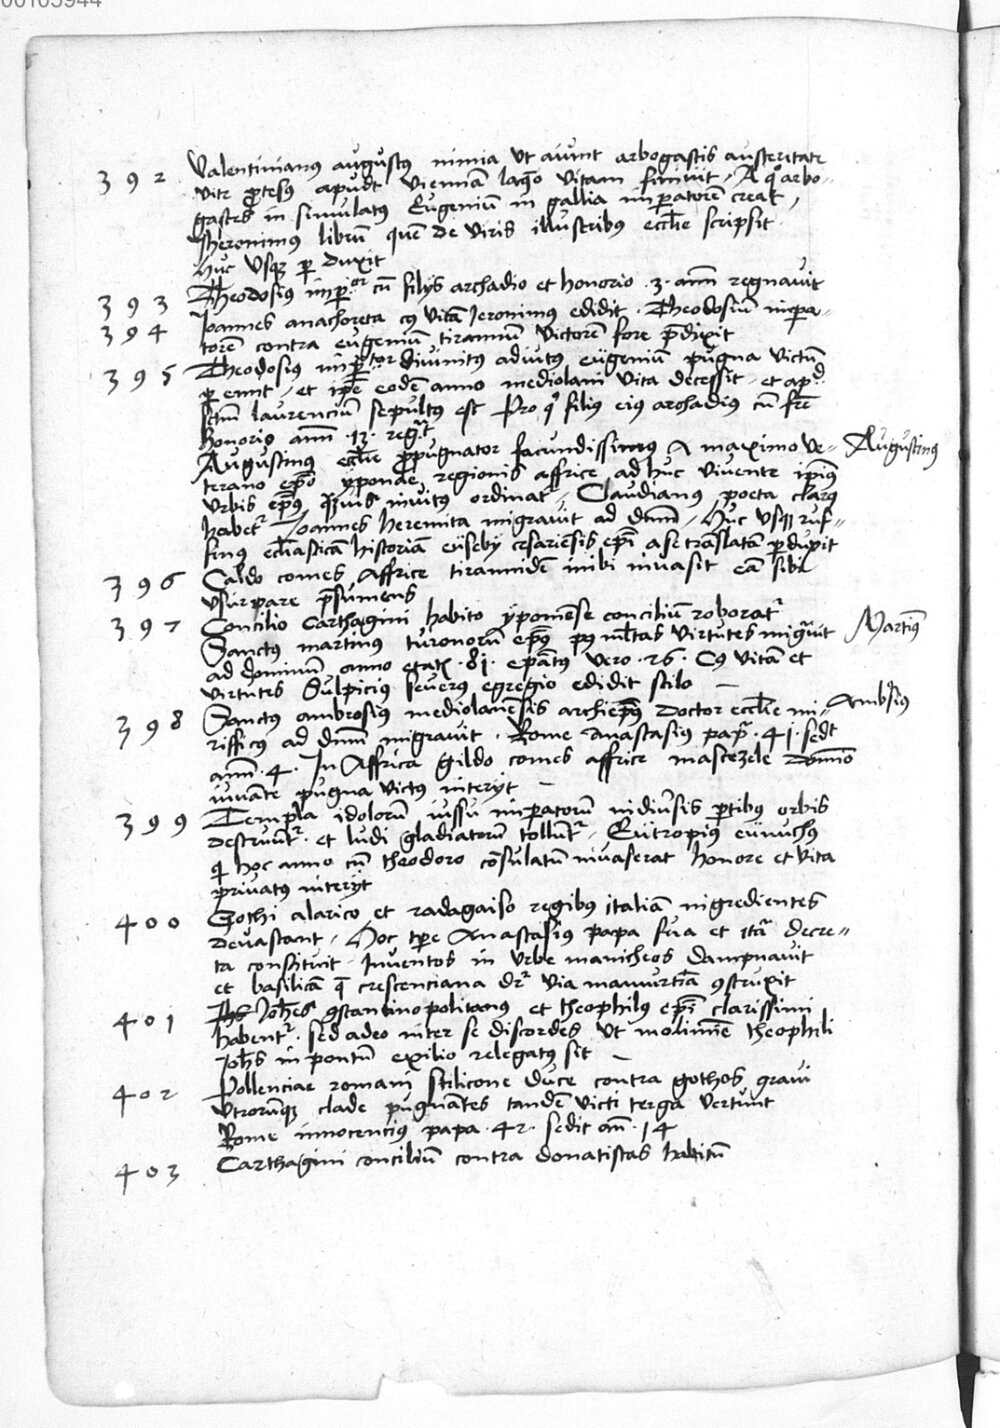 00105944
392 Valentinianus augustus nimia ut aiunt arbogastis austeritate
vite ptesus apudt viennā laqeo vitam finivit. A qo arbo-
gastes in simulatus Eugeniū in gallia impatorē creat,
Iheronimus librū quē de viris illustribus ecclie scripsit
huc usqz p duxit
393 Theodosius impor cū filijs archadio et honorio .3. ann regnavit
394 Joannes anachoreta cuius vitā Jeronimus edidit. Theodosiū impa-
torē contra eugeniū tirannū victorē fore pdixit
395 Theodosius impator divinitus adiutus eugeniū pugna victū
p emit, et ipe eodē anno mediolani vita decessit et apd
sctm laurenciū sepultus est Pro quo filius eius archadius cū fre
honorio ann .13. regt
Augustinus ecclie ppugnator facundissimus a maximo ve- Augustinus
terano epo yponae regionis affrice ad huc vivente ipius
urbis epus quis invitus ordinatr, Claudianus poeta clarus
habetr Joannes heremita migravit ad dnm, Huc usqz ruf-
finus eccliasticā historiā eusebij cesariēsis epi a se translatā pduxit
396 Caldo comes Affrice tirannidē inibi invasit eā sibi
usurpare psumens
397 Concilio Carthagini habito yponēse conciliū roboratr
Sanctus martinus turonorū epus post mltas virtutes migravit Martinus
ad dominū anno etatis .81. epatus vero .26. Cuius vitā et
virtutes Sulpicius severus egregio edidit stilo –
398 Sanctus ambrosius mediolanēsis archiepus doctor ecclie mi- Ambrosius
rifficus ad dnm migravit. Rome Anastasius papa .41. sedt
ann .4. In Affrica gildo comes affrice mascezele domino
iuvāte pugna victus interijt –
399 Templa idolorū iussu impatorū in diversis ptibus orbis
destruuntr. et ludi gladiatorū tolluntr, Eutropius eunuchus
qi hoc anno cū theodoro cōsulatum invaserat honore et vita
privatus interijt
400 Gothi alarico et radagaiso regibus italiā ingredientes
devastant, Hoc tpe Anastasius papa sua et ita decre-
ta constituit. Inventos in urbe manicheos dampnavit
et basilicā q crescenciana dr via mamurtia construxit
401 Johes constantinopolitanus et theophilus epi clarissimi
habentr. sed adeo inter se discordes ut molimine theophili
Johes in pontū exilio relegatus sit –
402 Pollenciae romani stilicone duce contra gothos gravi
utrorumqz clade pugnātes tandē victi terga vertunt
Rome innocencius papa .42. sedit an .14
403 Carthagini conciliū contra donatistas habitū